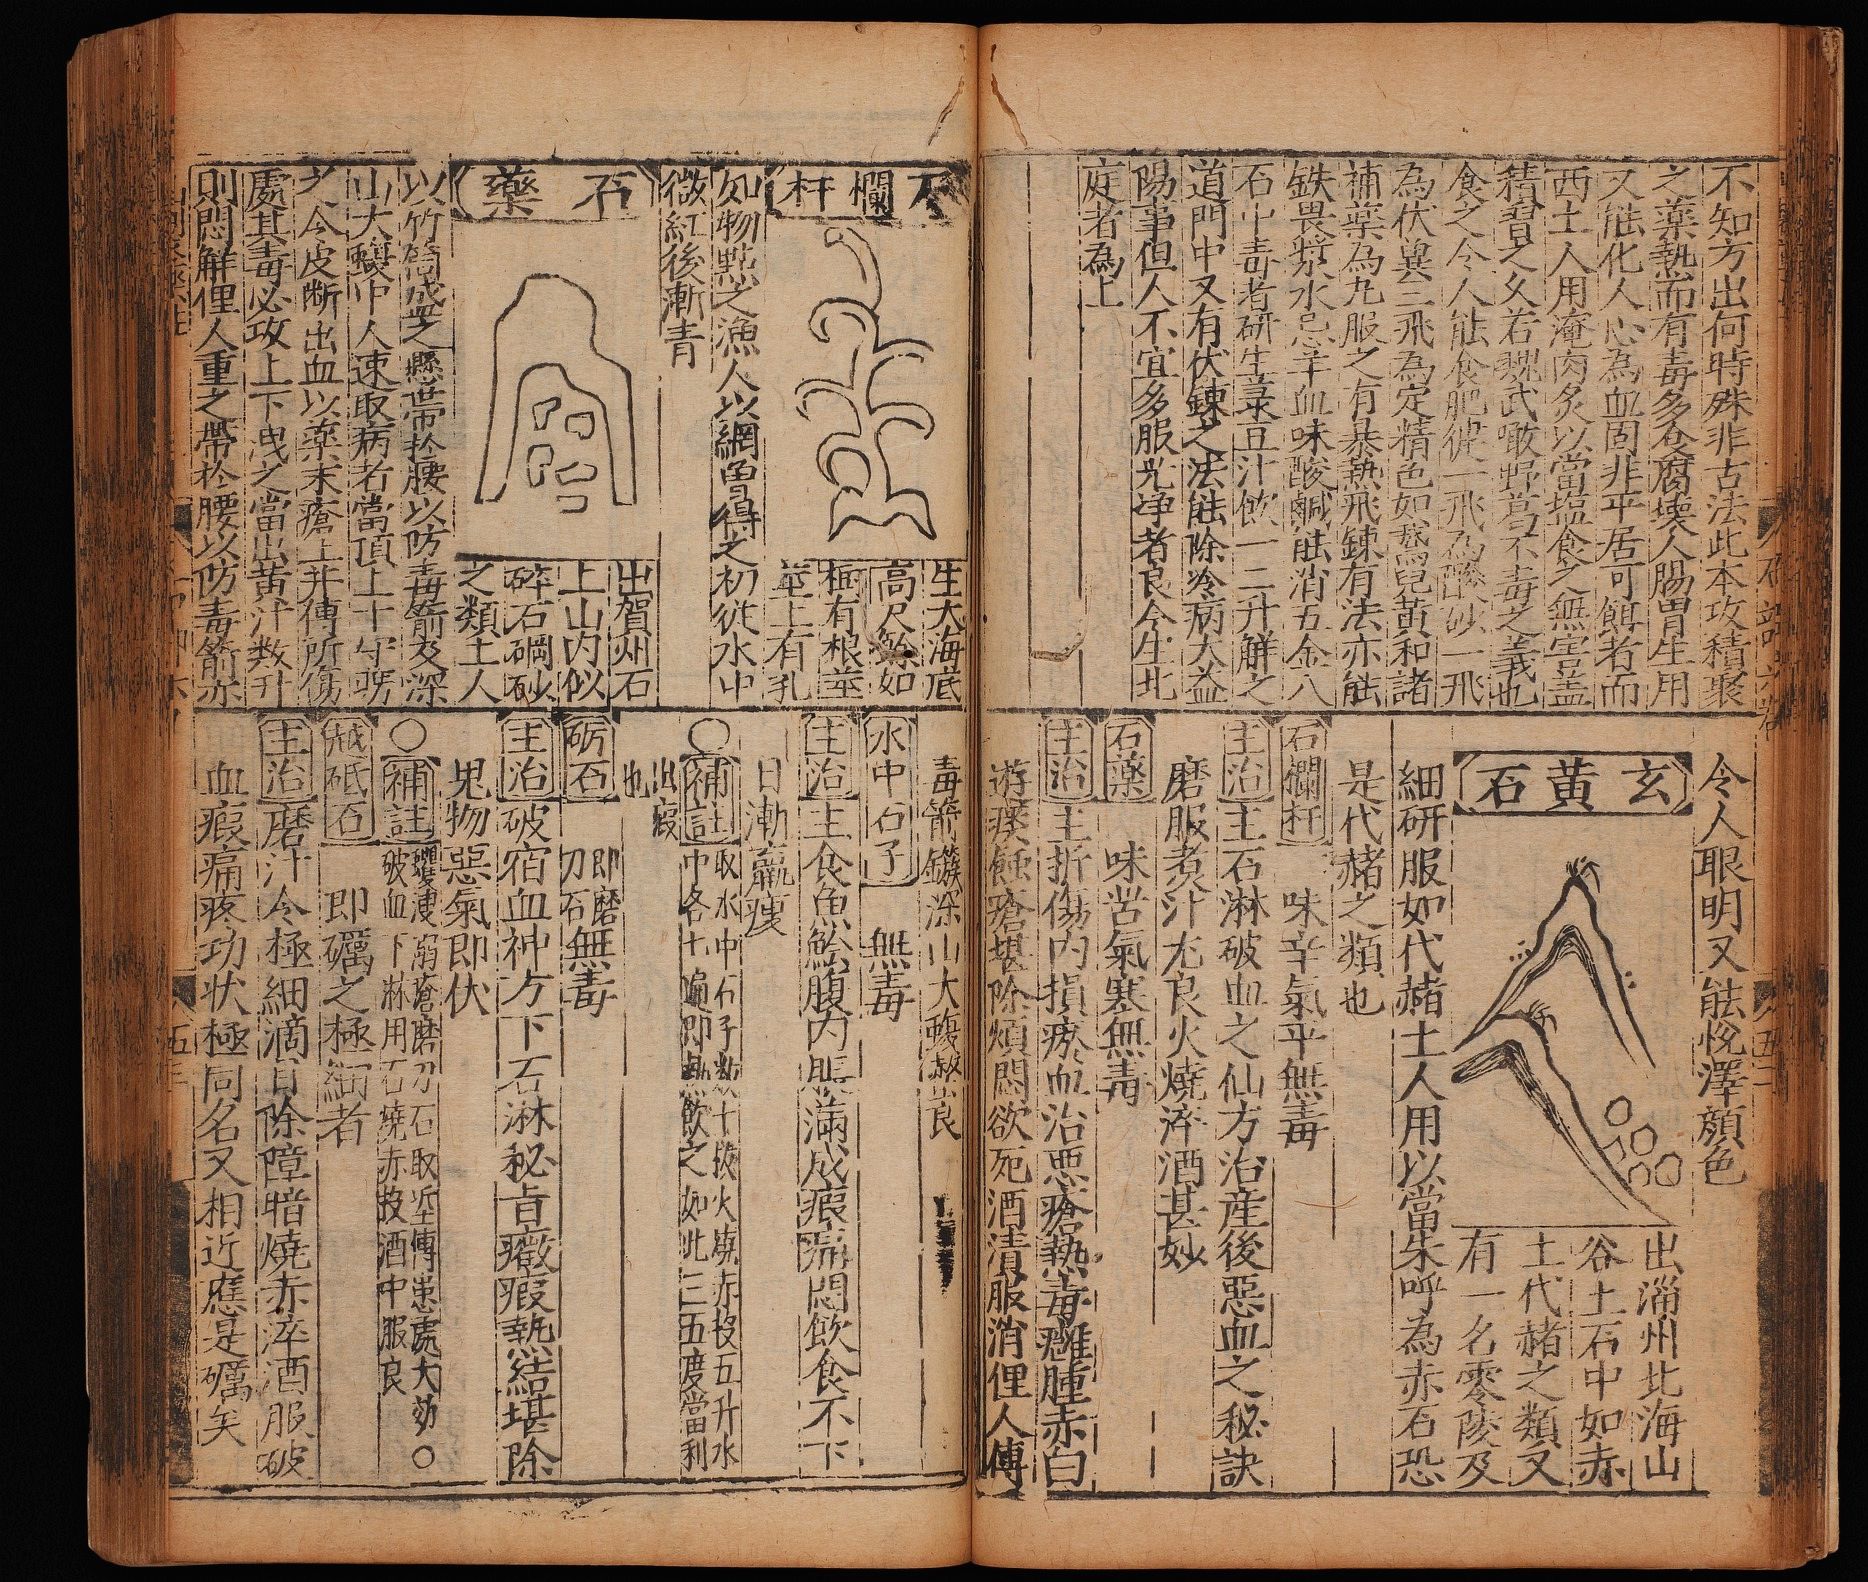 不知方出何時殊非古法此本攻積聚
之藥熱而有毒多食腐壞人腸胃生用
又能化人心為血固非平居可餌者而
西土人用淹肉炙以當塩食之無害蓋
積習之久若魏武噉野葛不毒之義也
食之今人能食肥健一飛為酸砂一飛
為伏翼三飛為定精色如鵞兒黃和諸
補藥為丸服之有暴熱飛鍊有法亦能
鉄畏漿水忌羊血味酸鹹能消五金八
石中毒者研生菉豆汁飲一二升解之
道門中又有伏鍊之法能除冷病大益
陽事但人不宜多服光净者良今生北
庭者為上
令人眼明又能悅澤顏色
玄黃石
出淄州北海山
谷土石中如赤
土代赭之類又
有一名零陵及
細研服如代赭土人用以當朱呼為赤石恐
是代赭之類也
石欄杆 味辛氣平無毒
主治主石淋破血之仙方治産後惡血之秘訣
磨服煮汁尤良火燒淬酒甚妙
石藥 味苦氣寒無毒
主治主折傷內損瘀血治惡瘡熱毒癰腫赤白
遊瘮蝕瘡堪除煩悶欲死酒漬服消俚人傳
石欄杆
生大海底
高尺餘如
樹有根莖
莖上有孔
如物點之漁人以網罾得之初從水中
微紅後漸青
石藥
出賀州石
上山內似
碎石硇砂
之類土人
以竹筒盛之懸帶於腰以防毒箭及深
山大蝮中人速取病者當頂上十字剺
之令皮斷出血以藥末瘡上并傅所傷
處其毒必攻上下洩之當出黃汁數升
則悶解俚人重之帶於腰以防毒箭亦
毒箭鏃深山大蝮蠚良
水中石子 無毒
主治主食魚鱠腹內脹滿成瘕痛悶飲食不下
日漸羸瘦
○補註取水中石子數十枚火燒赤投五升水
中各七遍即熱飲之如此三五度當利
出瘕
也
砺石 即磨
刀石無毒
主治破宿血神方下石淋秘旨癥瘕熱結堪除
鬼物惡氣即伏
○補註蠼螋溺瘡磨刀石取垽傅患處大効○
破血下淋用石燒赤投酒中服良
越砥石 即礪之極細者
主治磨汁令極細滴目除障暗燒赤淬酒服破
血瘕痛疼功状極同名又相近應是礪矣